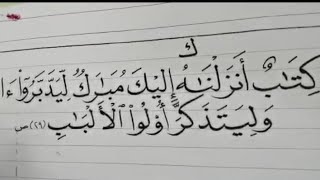 ك
كِتَٰبٌ أَنزَلْنَٰهُ إِلَيْكَ مُبَٰرَكٌ لِّيَدَّبَّرُوٓا۟ ءَا
وَلِيَتَذَكَّرَ أُو۟لُوا۟ ٱلْأَلْبَٰبِ (٢٩) ص